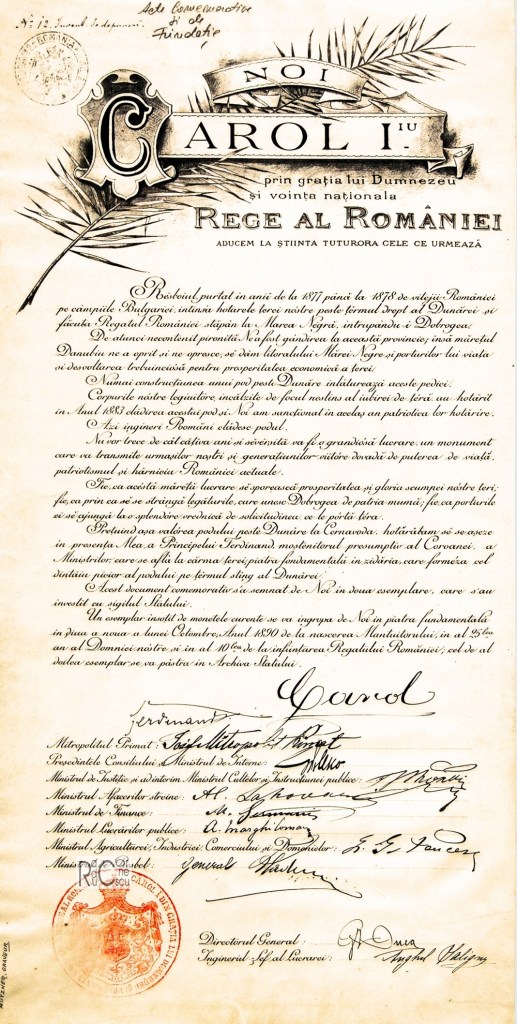 No 12.
Acte Comemorative
și de
Fundație
NOI
CAROL I.IU
prin grația lui Dumnezeu
și voința naționala
REGE AL ROMÂNIEI
ADUCEM LA ȘTIINTA TUTURORA CELE CE URMEAZĂ
Résboiul purtat in anii de la 1877 până la 1878 de vitejii României
pe câmpiile Bulgariei, intinsa hotarele țerei nóstre peste țermul drept al Dunărei și
făcuta Regatul României stăpân la Marea Négră, intrupându-i Dobrogea.
De atunci necontenit pironită Ne a fost gândirea la această provincie; insă mărețul
Danubiu ne a oprit și ne opresce, se dăm litoralului Mărei Negre și porturilor lui viața
si desvoltarea trebuinciósă pentru prosperitatea economică a țerei.
Numai construcțiunea unui pod peste Dunăre inlăturează aceste pedici.
Corpurile nóstre legiuitóre, incălzite de focul nestins al iubirei de țéră, au hotărit
in Anul 1883 clădirea acestui pod și Noi am sancționat in acelaș an patriotica lor hotărire.
Azi ingineri Români clădesc podul.
Nu vor trece de cât câțiva ani si sévêrsită va fi, e grandiósă lucrare, un monument
care va transmite urmașilor noștri și generațiunilor viitóre dovadă de puterea de viață,
patriotismul și hărnicia României actuale.
Fie, ca acéstă măreță lucrare sé sporească prosperitatea și gloria scumpei nóstre țeri;
fie, ca prin ea sé se strângă legăturile, care unesc Dobrogea de patria mumă; fie, ca porturile
ei sé ajungă la o splendóre vrednică de solicitudinea ce le pórtă țéra.
Prețuind așa valórea podului peste Dunăre la Cernavoda, hotărâtam sé se aseze
in presența Mea, a Principelui Ferdinand, moștenitorul presumptiv al Coroanei, a
Ministrilor, care se află la cârma țerei, piatra fundamentală in zidăria, care forméza cel
dintâiu picior al podului pe țermul sting al Dunărei.
Acest document comemorativ s'a semnat de Noi in doua esemplare, care s'au
investit cu sigilul Statului.
Un esemplar insoțit de monetele curente se va ingropa de Noi in piatra fundamentală
in diua a noua a lunei Octombre, Anul 1890 de la nascerea Mantuitorului, in al 25lea
an al Domniei nóstre si in al 10lea de la infiintarea Regatului României; cel de al
doilea esemplar se va păstra in Archiva Statului.
Carol
Ferdinand
Mitropolitul Primat: Iosif Mitropolit Primat
Președintele Consiliului și Ministrul de Interne:
Ministrul de Justiție și ad interim Ministrul Cultelor și Instrucțiunei publice:
Ministrul Afacerilor streine: Al. Lahovari
Ministrul de Finance: M. Germani
Ministrul Lucrărilor publice: A. Marghiloman
Ministrul Agriculturei, Industriei, Comerciului și Domeniilor:
Ministrul de Rěsbel: General Vlădescu
Directorul General: G. Duca
Inginerul-Șef al Lucrarei: Anghel Saligny